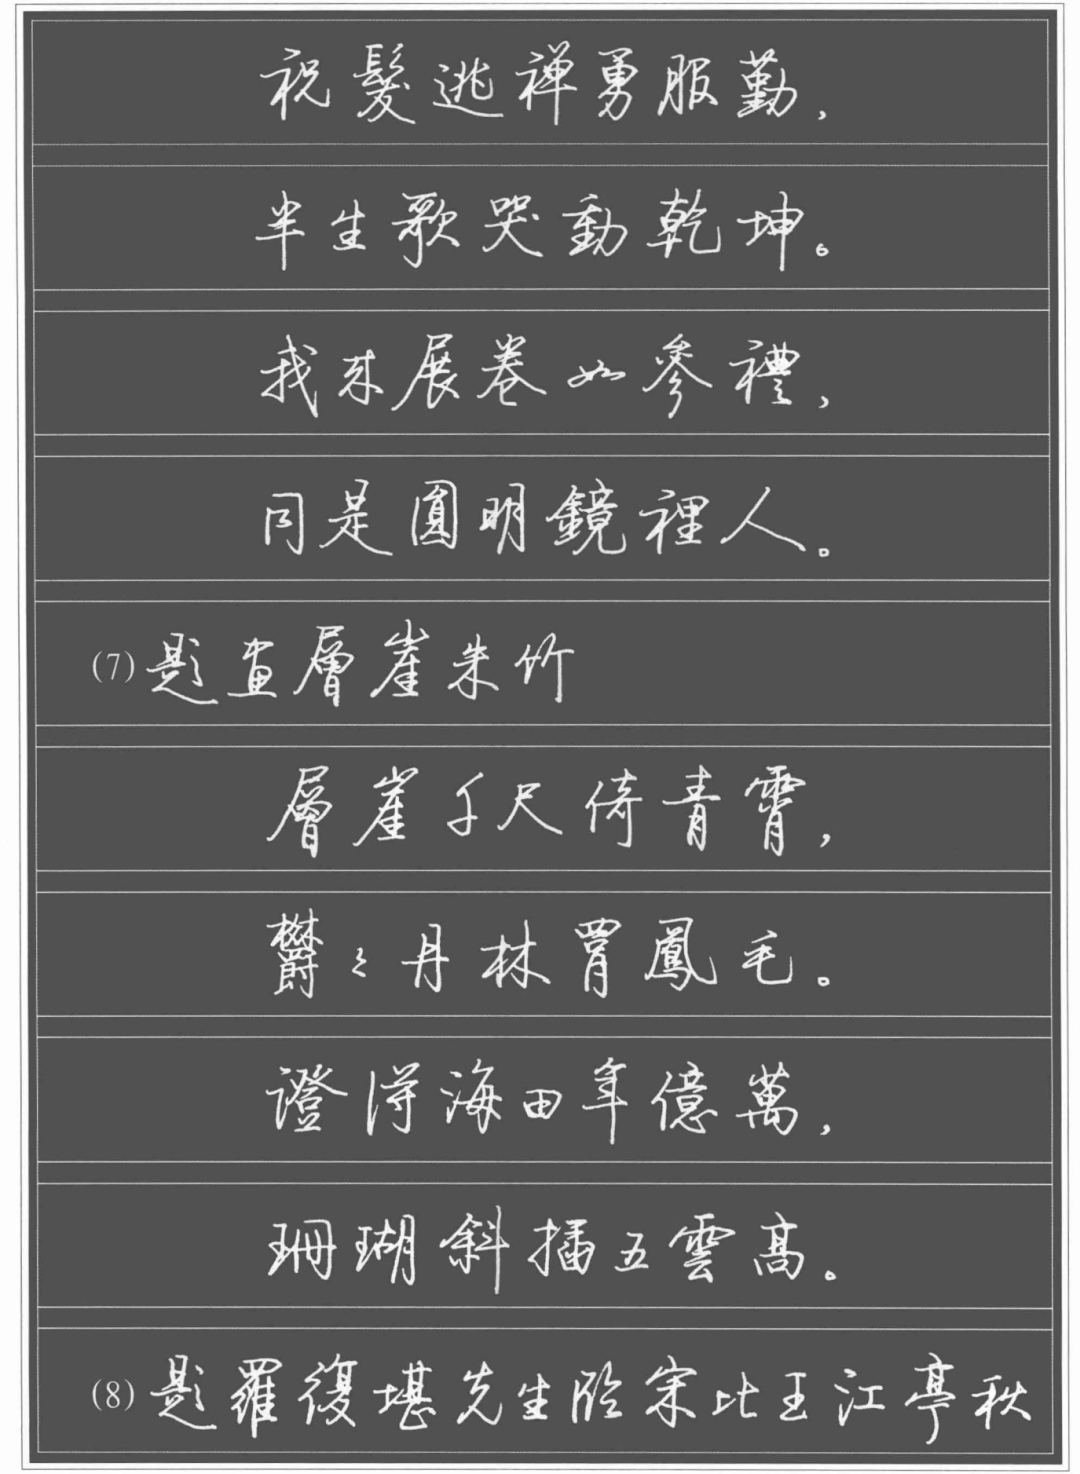 祝髮逃禪勇服勤，
半生歌哭動乾坤。
我來展卷如參禮，
同是圓明鏡裡人。
(7)題畫層崖朱竹
層崖千尺倚青霄，
欝〻丹林罥鳳毛。
證得海田年億萬，
珊瑚斜插五雲高。
(8)題羅復堪先生臨宋比玉江亭秋